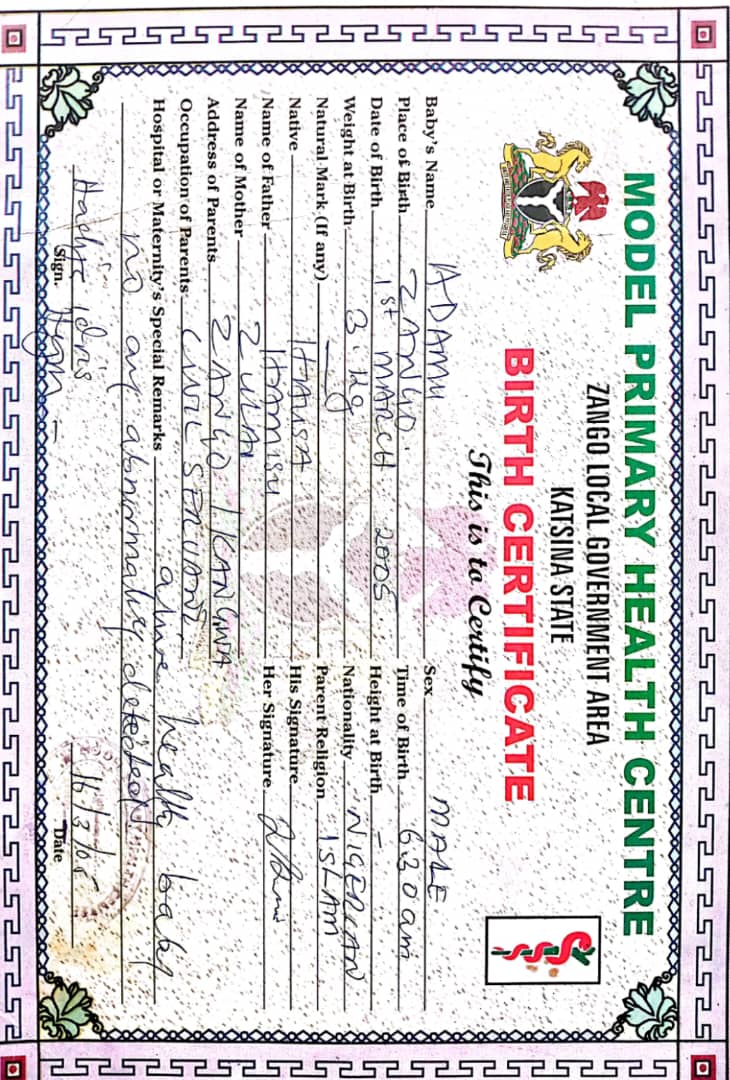 MODEL PRIMARY HEALTH CENTRE
ZANGO LOCAL GOVERNMENT AREA
KATSINA STATE
BIRTH CERTIFICATE
This is to Certify
Baby's Name ADAMU Sex MALE
Place of Birth ZANGO Time of Birth 6:30am
Date of Birth 1st MARCH 2005 Height at Birth -
Weight at Birth 3.1kg Nationality NIGERIAN
Natural Mark (If any) — Parent Religion ISLAM
Native HAUSA His Signature
Name of Father HAMISU Her Signature
Name of Mother ZULAI
Address of Parents ZANGO / KANGIWA
Occupation of Parents CIVIL SERVANT
Hospital or Maternity's Special Remarks alive healthy baby
no any abnormality detected
Hadiza Idris 16/3/05
Sign. Date